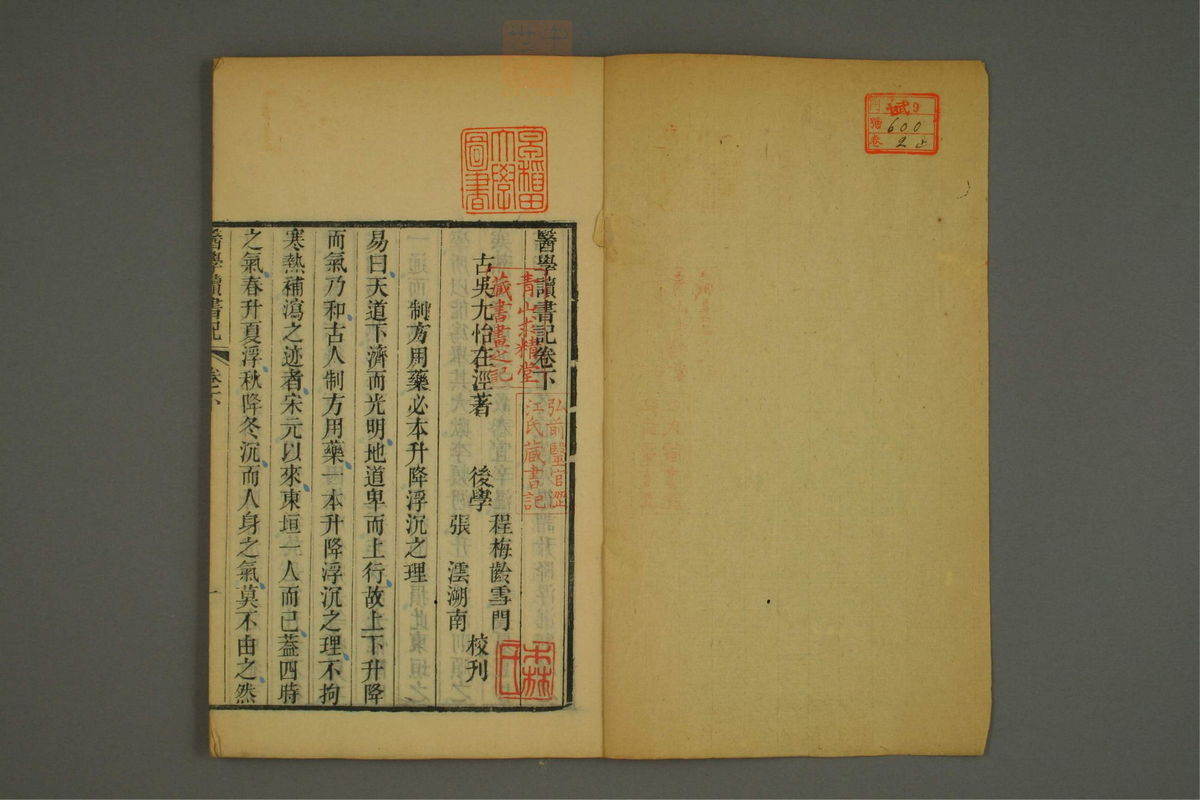 門 貳 9
號 600
卷 2 止
早稲田
大學
圖書
醫學讀書記卷下
青山求精堂
藏書畫之記
弘前醫官澀
江氏藏書記
森氏
古吳尤怡在涇著
後學
程梅齡雪門
張澐溯南
校刊
制方用藥必本升降浮沉之理
易曰天道下濟而光明地道卑而上行故上下升降
而氣乃和古人制方用藥一本升降浮沉之理不拘
寒熱補瀉之迹者宋元以來東垣一人而已葢四時
之氣春升夏浮秋降冬沉而人身之氣莫不由之然
醫學讀書記
卷下
一